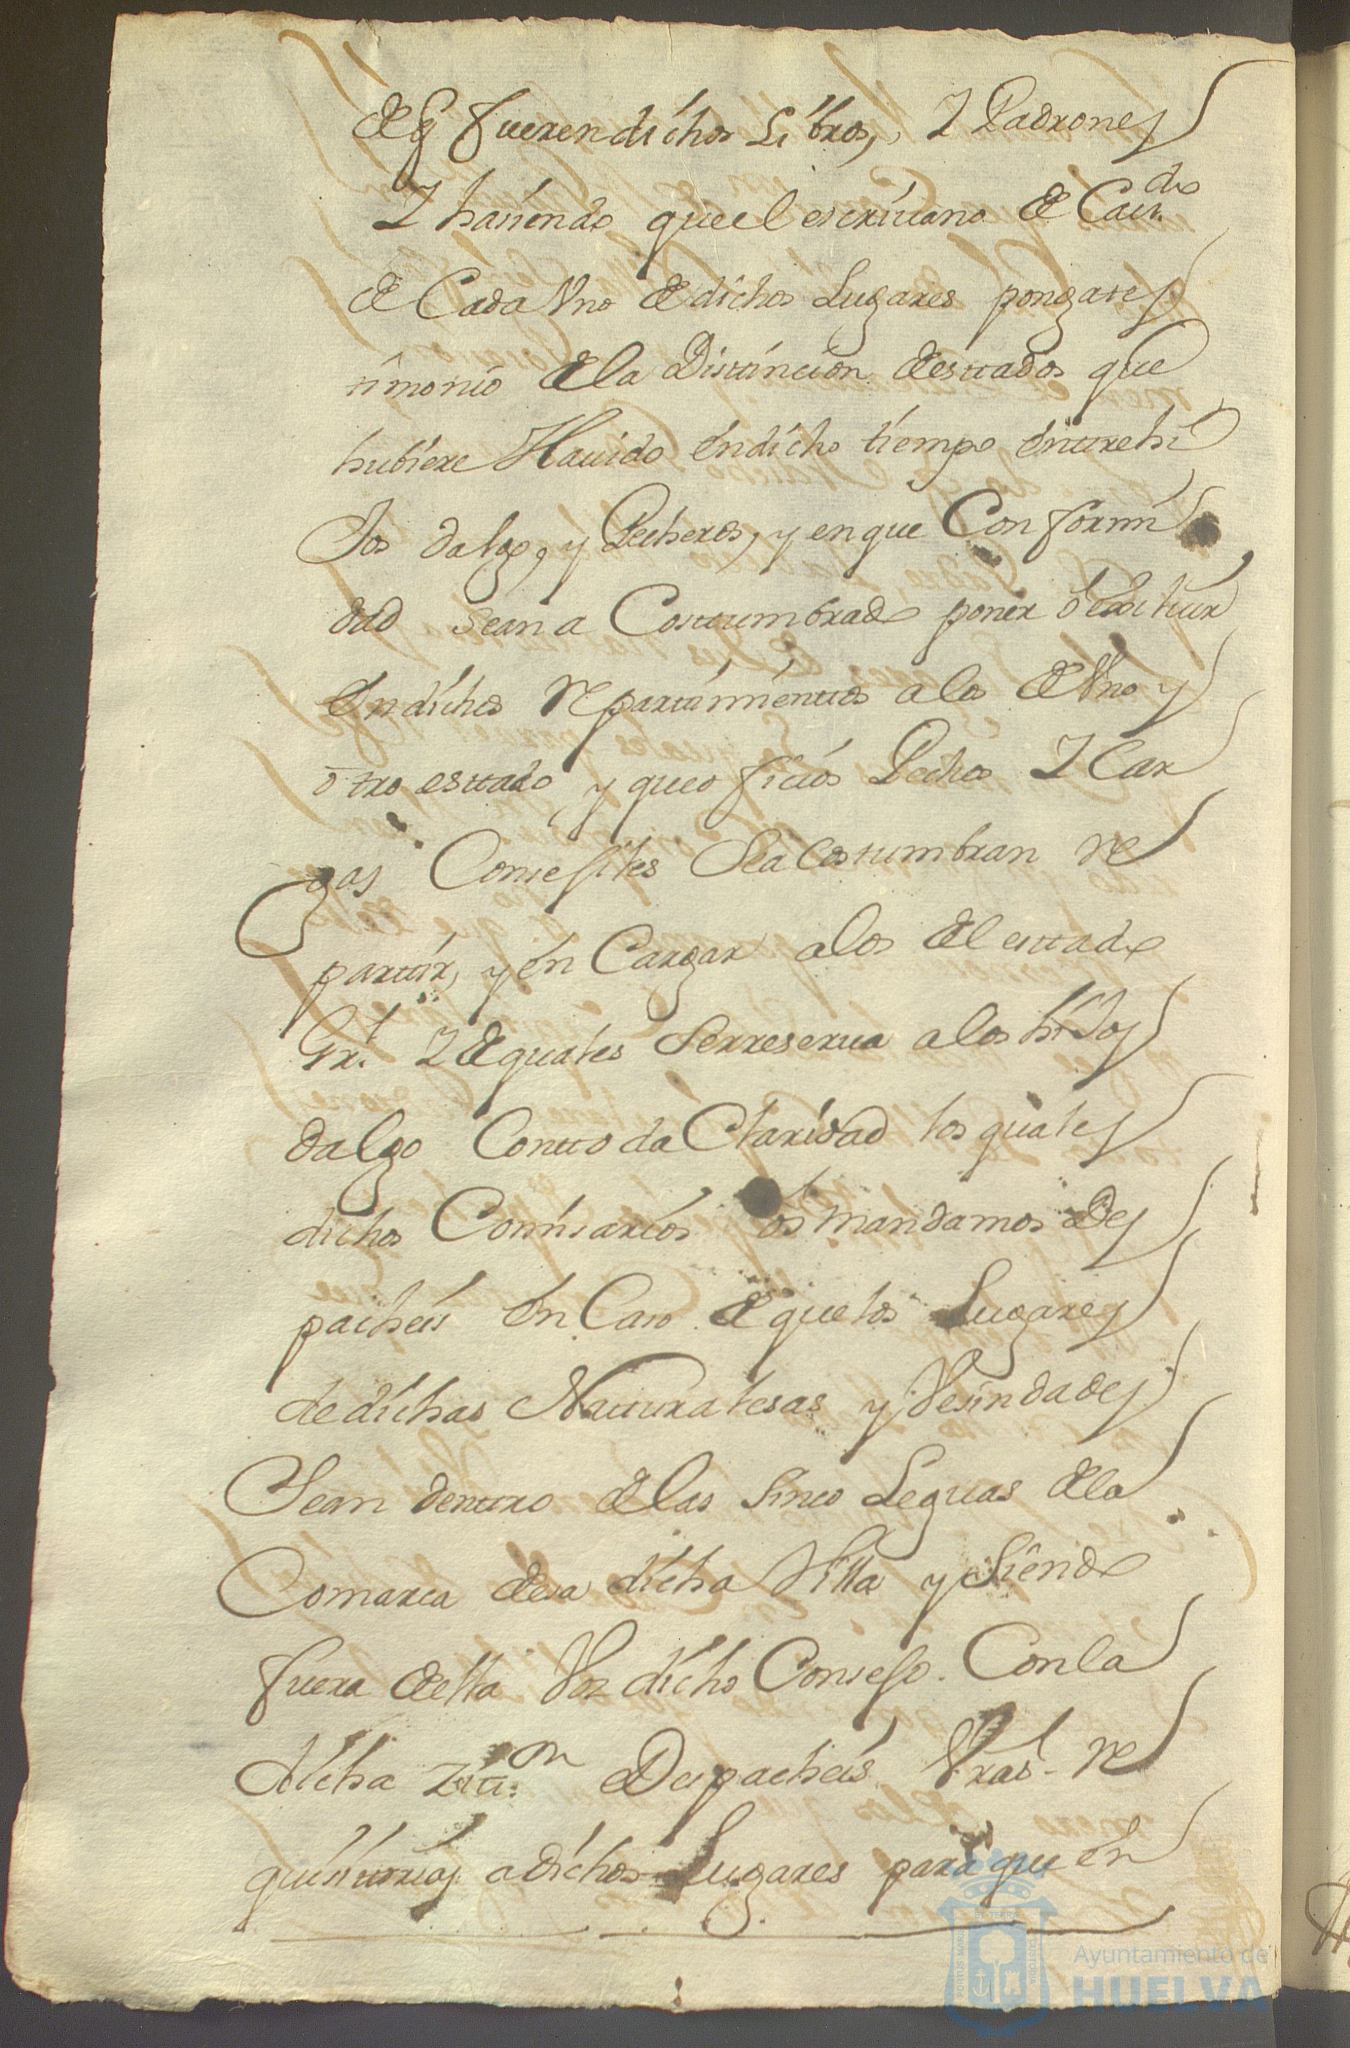 de q̃ fueren dichos Libros, Y Padrones
Y hasiendo que el escriuano de Cau.do
de Cada Vno de dichos Lugares ponga tes
timonio de la Distincion de esttados que
hubiere Hauido en dicho tiempo entre hi
Jos dalgo, y Pecheros, y en que Conformi
dad se an a Costtumbrado poner o escriuir
En dichos repartimienttos a los de Vno y
otro esttado y que oficios Pechos Y Car
gas Consejiles se a Costumbran re
partir, y en Cargar a los del esttado
Grl. Y de quales se rreserua a los hiJos
dalgo Con ttoda Claridad los quales
dichos Comisarios os mandamos Des
pacheis en Caso de que los Lugares
de dichas Natturalesas y Vesindades
Sean dentro de las sinco Leguas de la
Comarca de esa dicha Villa y Siendo
fuera de ella Vos dicho Consejo. Con la
dicha Zitt.on Despacheis Vras. re
quisitorias a dichos Lugares para que en
Ayuntamiento de
HUELVA